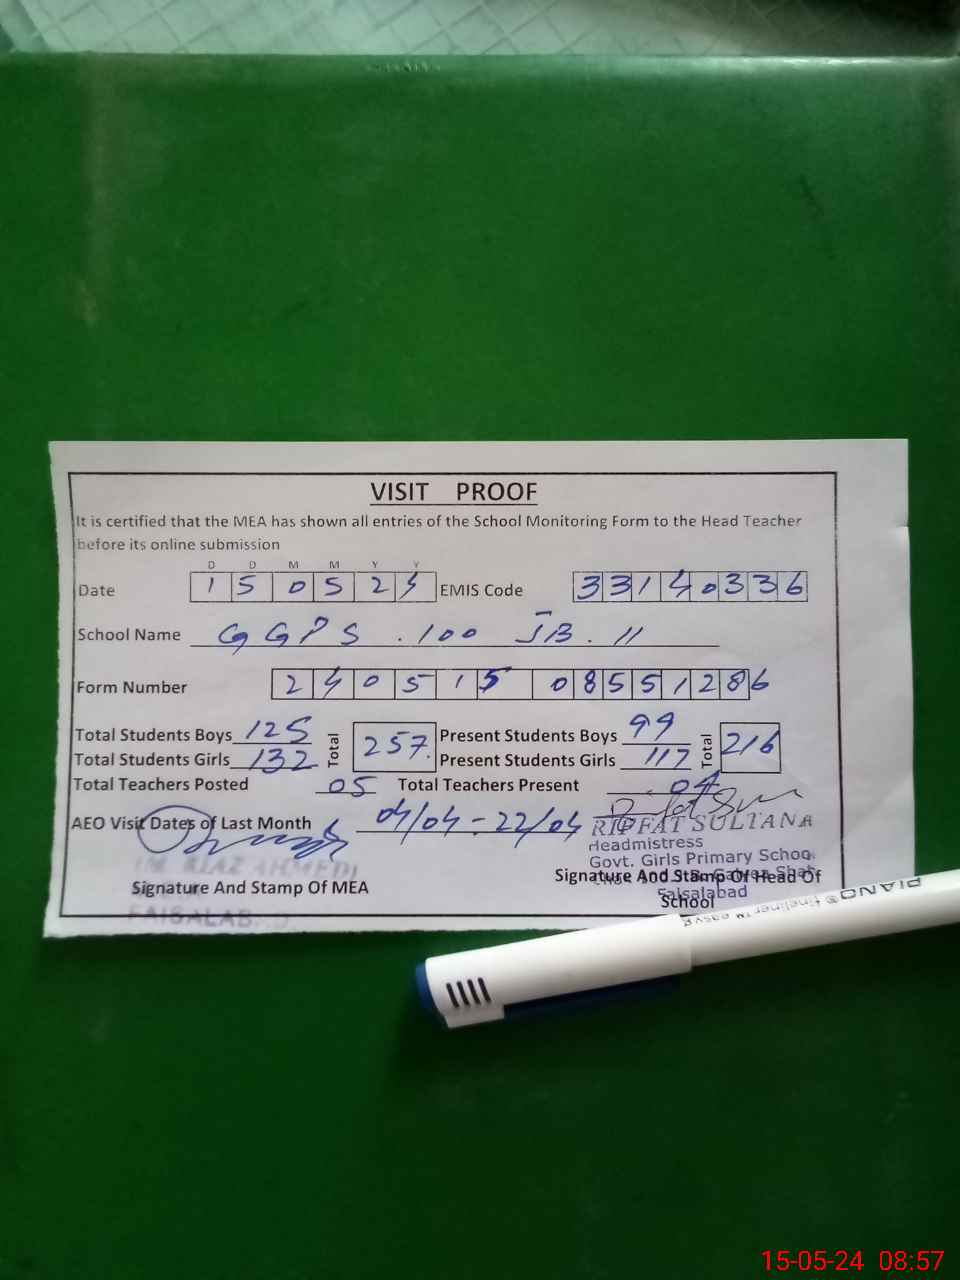 VISIT PROOF
It is certified that the MEA has shown all entries of the School Monitoring Form to the Head Teacher
before its online submission
D D M M Y Y
Date 1 5 0 5 2 4 EMIS Code 3 3 1 4 0 3 3 6
School Name GGPS . 100 JB . II
Form Number 2 4 0 5 1 5 0 8 5 5 1 2 8 6
Total Students Boys 125 Total 257. Present Students Boys 99 Total 216
Total Students Girls 132 Present Students Girls 117
Total Teachers Posted 05 Total Teachers Present 04
AEO Visit Dates of Last Month 04/04 - 22/04
RIFFAT SULTANA
Headmistress
Govt. Girls Primary School
Faisalabad
RIAZ AHMED
FAISALABAD
Signature And Stamp Of MEA
Signature And Stamp Of Head Of
School
PIANO ® fineliner™ easy
15-05-24 08:57